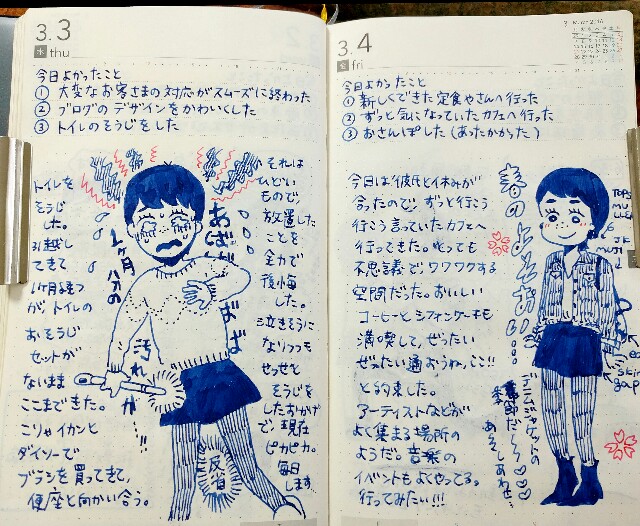 3.3
木 thu
今日よかったこと
① 大変なお客さまの対応がスムーズに終わった
② ブログのデザインをかわいくした
③ トイレのそうじをした
トイレを
そうじ
した。
引越し
してきて
1ヶ月経つ
が、トイレの
おそうじ
セットが
ないまま
ここまできた。
こりゃイカンと
ダイソーで
ブラシを買ってきて、
便座と向かい合う。
それは
ひどい
もので、
放置した
ことを
全力で
後悔
した。
泣きそうに
なりつつも
せっせと
そうじを
したおかげ
で、現在
ピカピカ。
毎日
します。
あばばばば
1ヶ月分の
汚れが…!!
反省
3.4
金 fri
3 March 2016
今日よかったこと
① 新しくできた定食やさんへ行った
② ずっと気になっていたカフェへ行った
③ おさんぽした(あったかかった)
今日は彼氏と休みが
合ったので、ずっと行こう
行こう言っていたカフェへ
行ってきた。とっても
不思議で、ワクワクする
空間だった。おいしい
コーヒーとシフォンケーキも
満喫して、ぜったい
ぜったい通おうね、ここ!!
と約束した。
アーティストなどが
よく集まる場所の
ようだ。音楽の
イベントもよくやってる。
行ってみたい!!!
春のよそおい…
デニムジャケットの
季節だ〜〜♡♡♡
あぁしあわせ…
TOPS
MUJI
skirt
gap